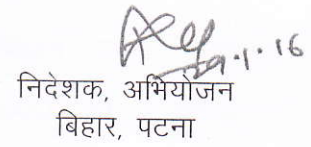 29.1.16
निदेशक, अभियोजन
बिहार, पटना